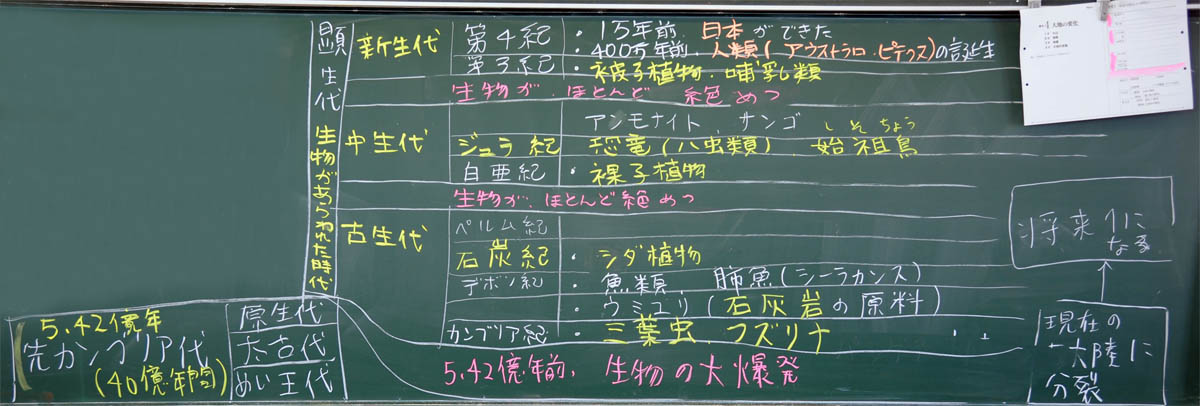 顕生代 生物があらわれた時代
新生代
第4紀 ・15年前 日本ができた
・400万年前 人類(アウストラロピテクス)の誕生
第3紀 ・被子植物・哺乳類
生物が ほとんど 絶めつ
中生代
アンモナイト、サンゴ
しそちょう
ジュラ紀 恐竜(ハ虫類) 始祖鳥
白亜紀 ・裸子植物
生物が、ほとんど絶めつ
古生代
ペルム紀
石炭紀 ・シダ植物
デボン紀 ・魚類、肺魚(シーラカンス)
・ウミユリ(石灰岩の原料)
カンブリア紀 ・三葉虫、フズリナ
5.42億年前、生物の大爆発
5.42億年
先カンブリア代
(40億年間)
原生代
太古代
めい王代
将来1に
なる
現在の
大陸に
分裂
4 大地の変化